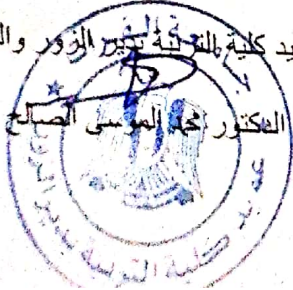 يد كلية التربية بدير الزور وال
الدكتور محمد الموسى الصالح
كلية التربية بدير الزور